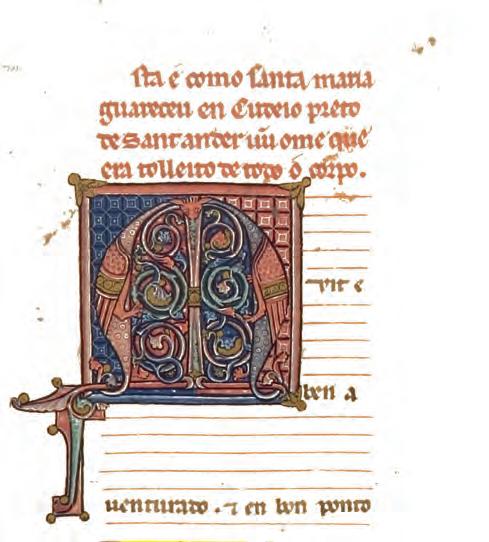 sta é como santa maria
guareceu en Cudeio preto
de Santander uũ ome que
era tolleito de toðo o corpo.
M
vit e
ben a
uenturado . ⁊ en bon ponto